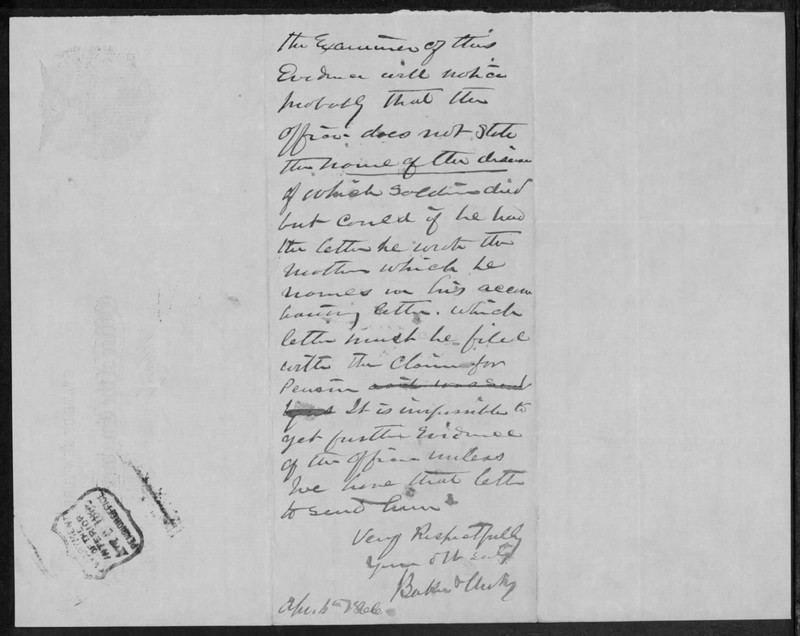 the Examiner of this
Evidence will notice
probably that the
officer does not state
the name of the disease
of which soldier died
but could if he had
the letter he wrote the
mother which he
names in his accom
panying letter. which
letter must be filed
with the Claim for
Pension
It is impossible to
get further Evidence
of the officer unless
we have that letter
to send him
Very Respectfully
Your Obt
Baker &
INTERIOR
PENSION OFFICE